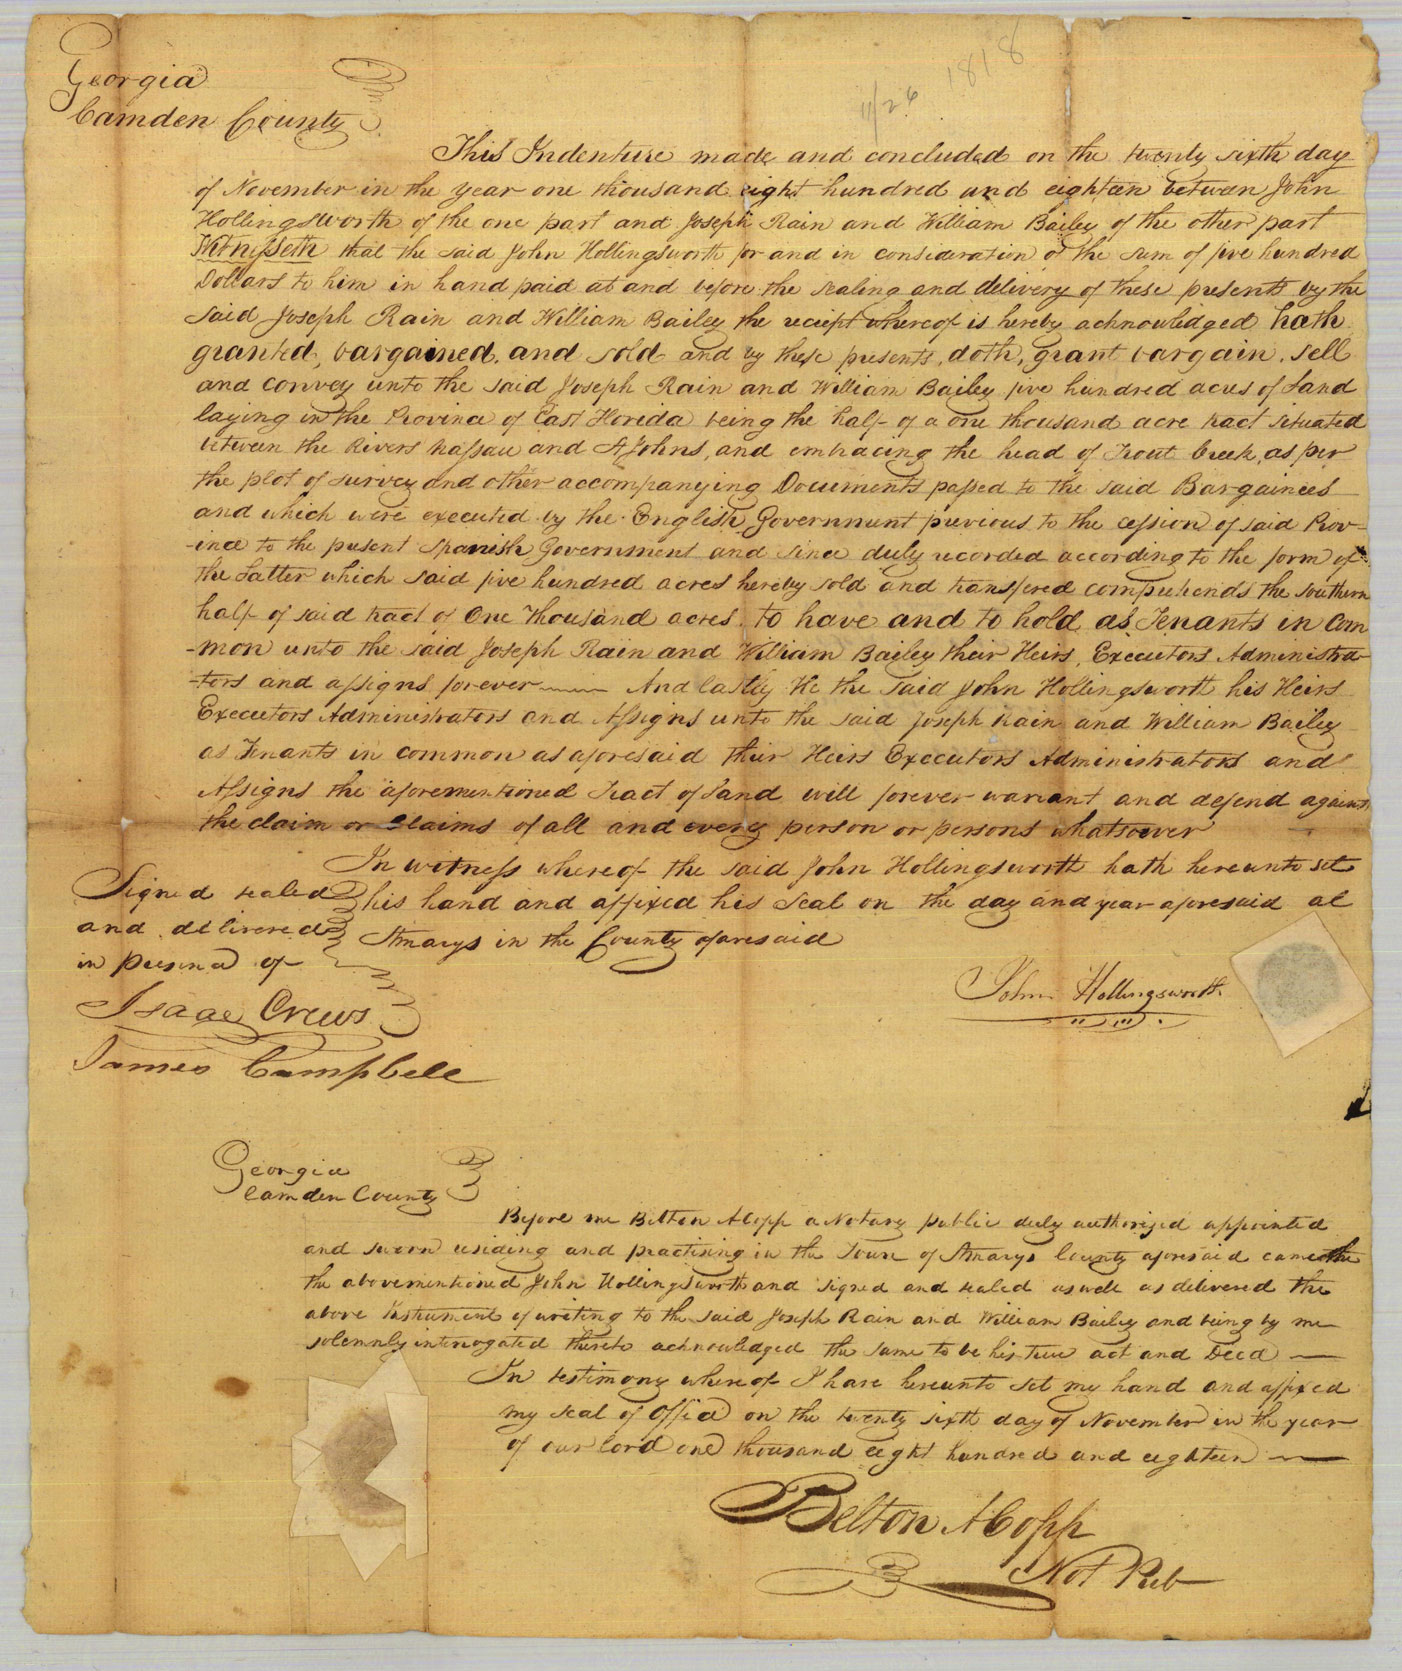 Georgia
Camden County
11/26 1818
This Indenture made and concluded on the twenty sixth day
of November in the year one thousand eight hundred and eighteen between John
Hollingsworth of the one part and Joseph Rain and William Bailey of the other part
Witnesseth that the said John Hollingsworth for and in consideration of the sum of five hundred
Dollars to him in hand paid at and before the sealing and delivery of these presents by the
said Joseph Rain and William Bailey the reciept whereof is hereby acknowledged hath
granted, bargained, and sold and by these presents, doth, grant bargain, sell
and convey unto the said Joseph Rain and William Bailey five hundred acres of Land
laying in the Province of East Floreda being the half of a one thousand acre tract situated
between the Rivers Nassau and St Johns, and embracing the head of Trout Creek, as per
the plot of survey and other accompanying Documents passed to the said Bargainees
and which were executed by the English Government previous to the cession of said Prov-
-ince to the present Spanish Government and since duly recorded according to the form of
the Latter which said five hundred acres hereby sold and transfered comprehends the southern
half of said tract of One Thousand acres to have and to hold as Tenants in Com
-mon unto the said Joseph Rain and William Bailey their Heirs, Executors Administra-
-tors and assigns forever And lastly He the said John Hollingsworth his Heirs
Executors Administrators and Assigns unto the said Joseph Rain and William Bailey
as Tenants in common as aforesaid their Heirs Executors Administrators and
Assigns the aforementioned Tract of Land will forever warrant and defend against
the claim or Claims of all and every person or persons whatsoever
In witness whereof the said John Hollingsworth hath hereunto set
his hand and affixed his Seal on the day and year aforesaid at
St marys in the County aforesaid
Signed sealed
and delivered
in presence of
Isaac Crews
James Campbell
John Hollingsworth
Georgia
Camden County
Before me Belton A Copp a Notary public duly authorized appointed
and sworn residing and practising in the Town of St marys County aforesaid came the
the abovementioned John Hollingsworth and signed and sealed as well as delivered the
above Instrument of writing to the said Joseph Rain and William Bailey and being by me
solemnly interrogated thereto acknowledged the same to be his true act and Deed
In testimony whereof I have hereunto set my hand and affixed
my seal of Office on the twenty sixth day of November in the year
of our Lord one thousand eight hundred and eighteen
Belton A Copp
Not Pub